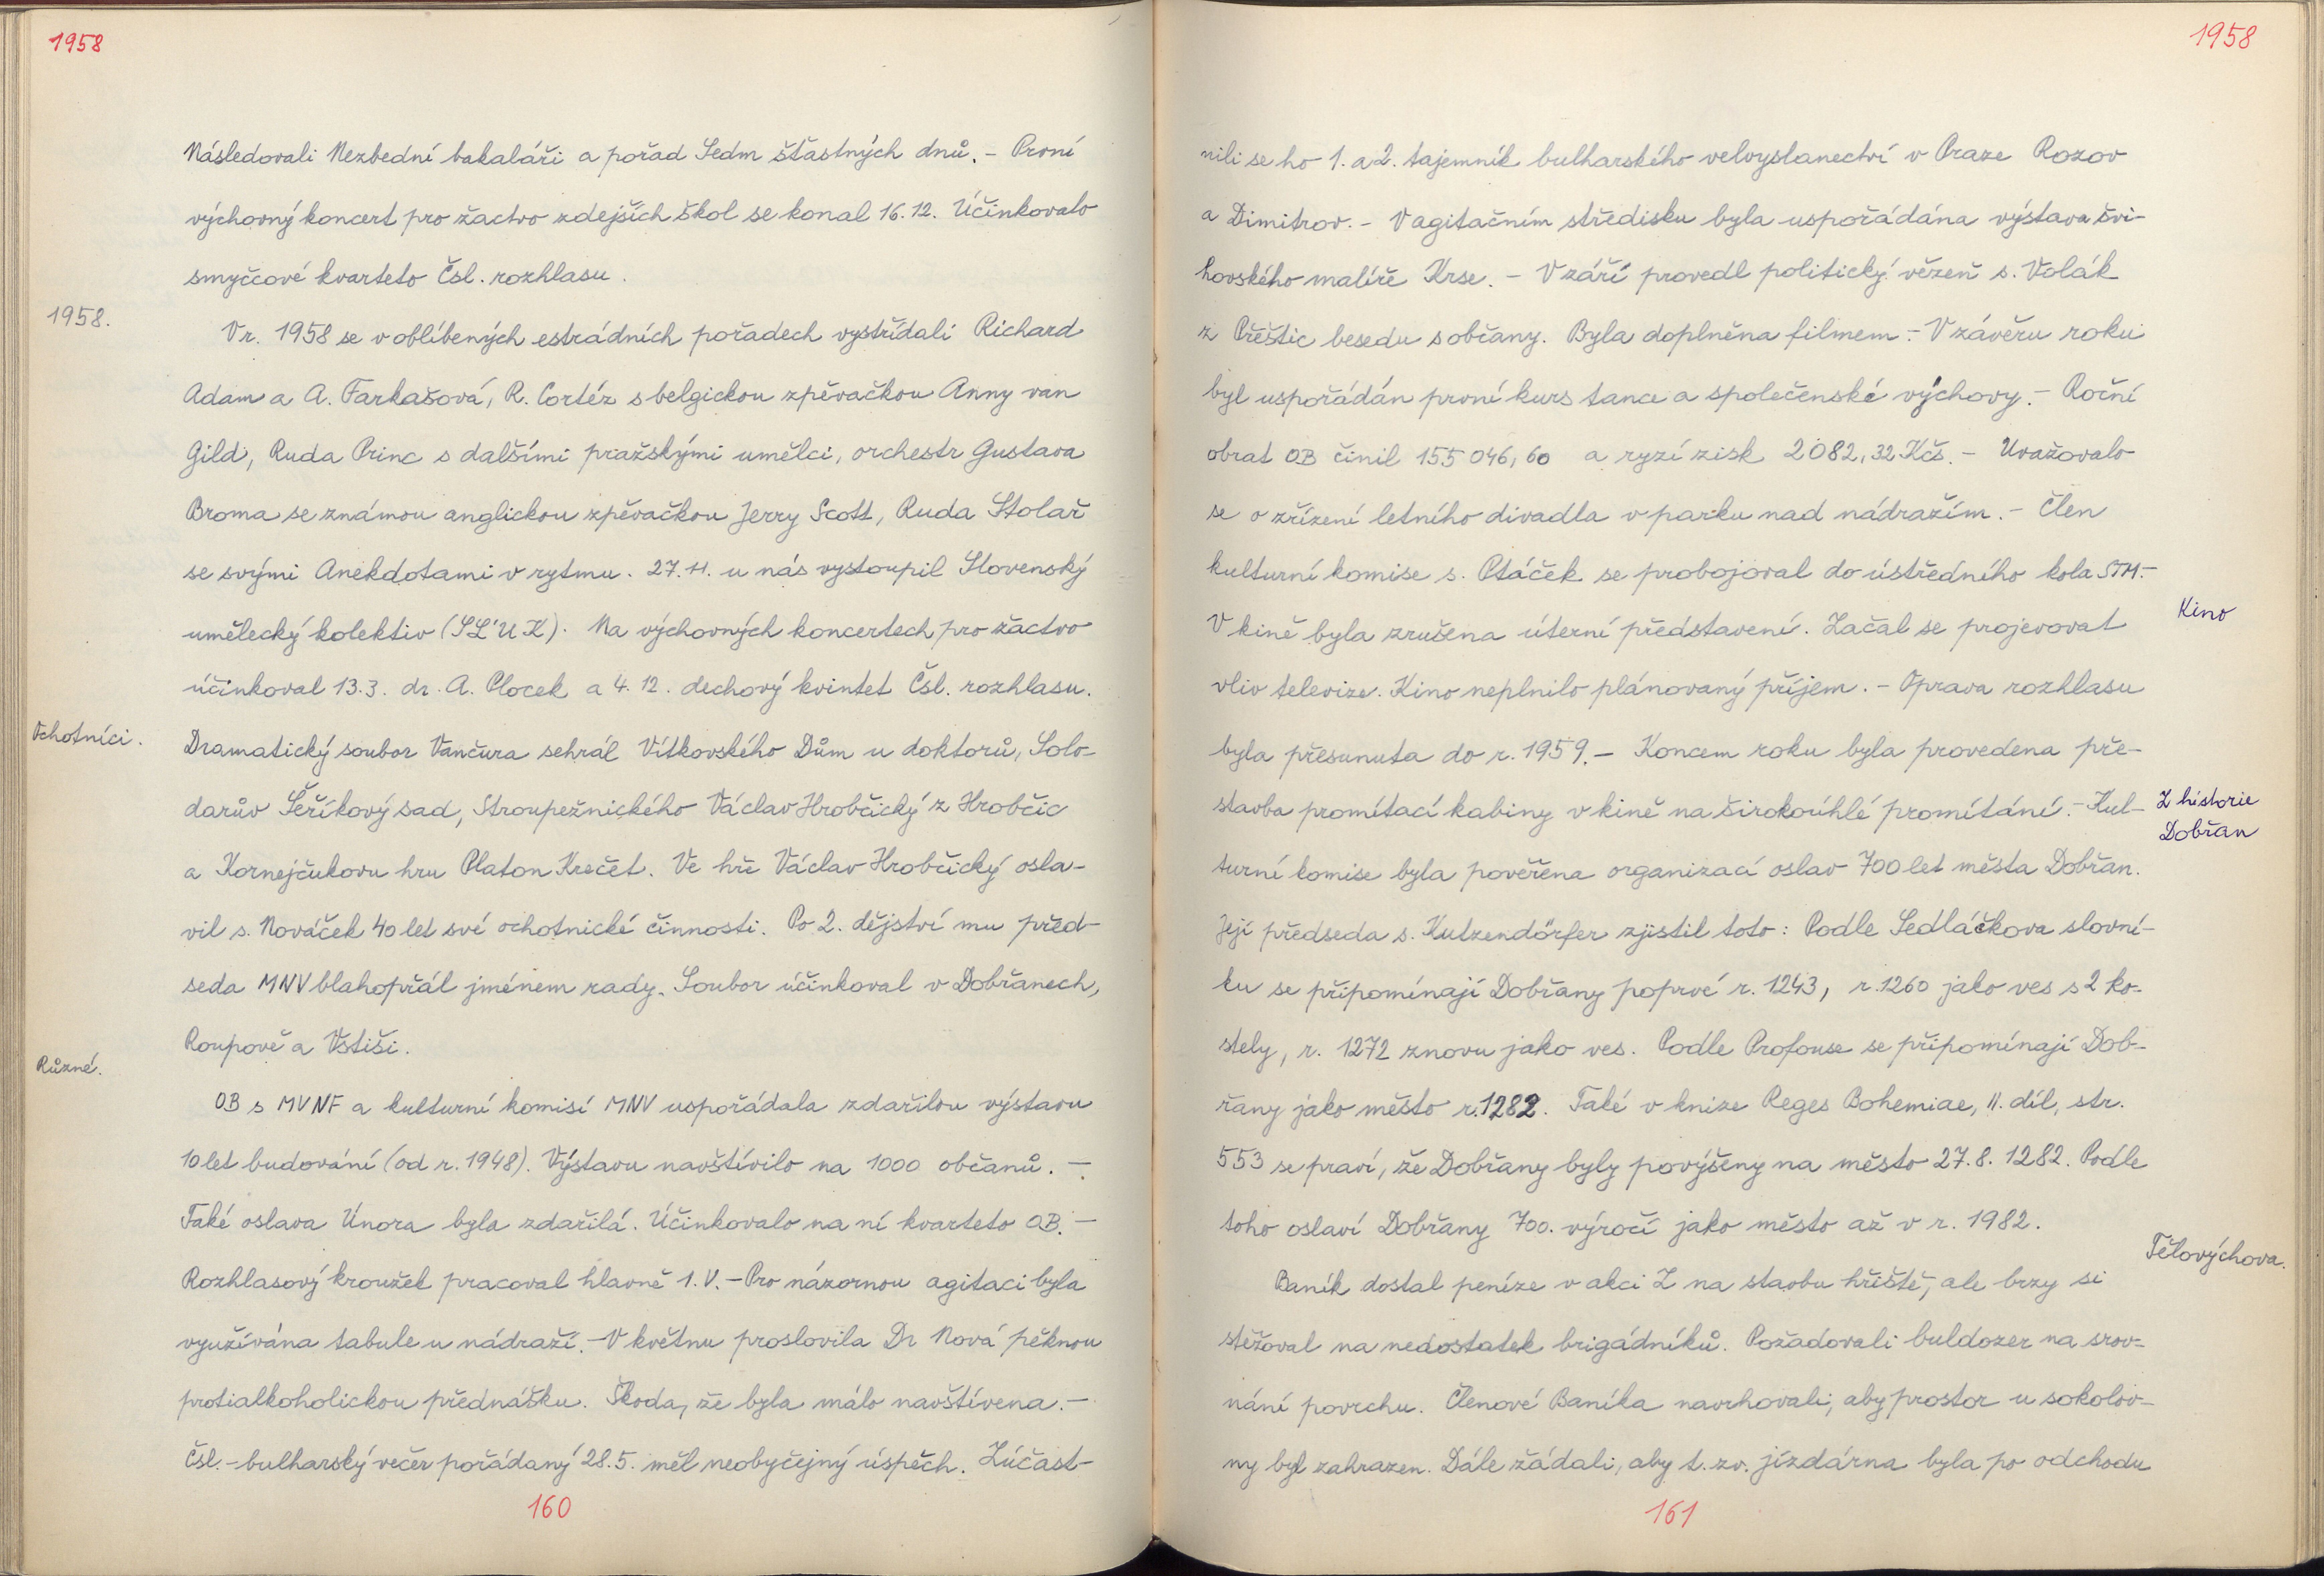 1958
Následovali Nezbední bakaláři a pořad Sedm šťastných dnů. – První
výchovný koncert pro žactvo zdejších škol se konal 16.12. Účinkovalo
smyčcové kvarteto Čsl. rozhlasu.
1958.
V r. 1958 se v oblíbených estrádních pořadech vystřídali Richard
Adam a A. Farkašová, R. Cortéz s belgickou zpěvačkou Anny van
Gild, Ruda Princ s dalšími pražskými umělci, orchestr Gustava
Broma se známou anglickou zpěvačkou Jerry Scott, Ruda Stolař
se svými Anekdotami v rytmu. 27.11. u nás vystoupil Slovenský
umělecký kolektiv (SL'UK). Na výchovných koncertech pro žactvo
účinkoval 13.3. dr. A. Plocek a 4.12. dechový kvintet Čsl. rozhlasu.
Ochotníci.
Dramatický soubor Vančura sehrál Vítkovského Dům u doktorů, Solo-
darův Šeříkový sad, Stroupežnického Václav Hrobčický z Hrobčic
a Kornejčukovu hru Platon Krečet. Ve hře Václav Hrobčický osla-
vil s. Nováček 40 let své ochotnické činnosti. Po 2. dějství mu před-
seda MNV blahopřál jménem rady. Soubor účinkoval v Dobřanech,
Roupově a Vstiši.
Různé.
OB s MVNF a kulturní komisí MNV uspořádala zdařilou výstavu
10 let budování (od r. 1948). Výstavu navštívilo na 1000 občanů. –
Také oslava Února byla zdařilá. Účinkovalo na ní kvarteto OB. –
Rozhlasový kroužek pracoval hlavně 1. V. – Pro názornou agitaci byla
využívána tabule u nádraží. – V květnu proslovila Dr Nová pěknou
protialkoholickou přednášku. Škoda, že byla málo navštívena. –
Čsl.-bulharský večer pořádaný 28.5. měl neobyčejný úspěch. Zúčast-
160
1958
nili se ho 1. a 2. tajemník bulharského velvyslanectví v Praze Rozov
a Dimitrov. – V agitačním středisku byla uspořádána výstava švi-
hovského malíře Krse. – V září provedl politický vězeň s. Volák
z Přeštic besedu s občany. Byla doplněna filmem. – V závěru roku
byl uspořádán první kurs tance a společenské výchovy. – Roční
obrat OB činil 155 046,60 a ryzí zisk 2 082,32 Kčs. – Uvažovalo
se o zřízení letního divadla v parku nad nádražím. – Člen
kulturní komise s. Ptáček se probojoval do ústředního kola STM. –
Kino
V kině byla zrušena úterní představení. Začal se projevovat
vliv televize. Kino neplnilo plánovaný příjem. – Oprava rozhlasu
byla přesunuta do r. 1959. – Koncem roku byla provedena pře-
stavba promítací kabiny v kině na širokoúhlé promítání. – Kul-
Z historie
Dobřan
turní komise byla pověřena organizací oslav 700 let města Dobřan.
Její předseda s. Kutzendörfer zjistil toto: Podle Sedláčkova slovní-
ku se připomínají Dobřany poprvé r. 1243, r. 1260 jako ves s 2 ko-
stely, r. 1272 znovu jako ves. Podle Profouse se připomínají Dob-
řany jako město r. 1282. Také v knize Reges Bohemiae, II. díl, str.
553 se praví, že Dobřany byly povýšeny na město 27.8. 1282. Podle
toho oslaví Dobřany 700. výročí jako město až v r. 1982.
Tělovýchova.
Baník dostal peníze v akci Z na stavbu hřiště, ale brzy si
stěžoval na nedostatek brigádníků. Požadovali buldozer na srov-
nání povrchu. Členové Baníka navrhovali, aby prostor u sokolov-
ny byl zahrazen. Dále žádali, aby t. zv. jízdárna byla po odchodu
161